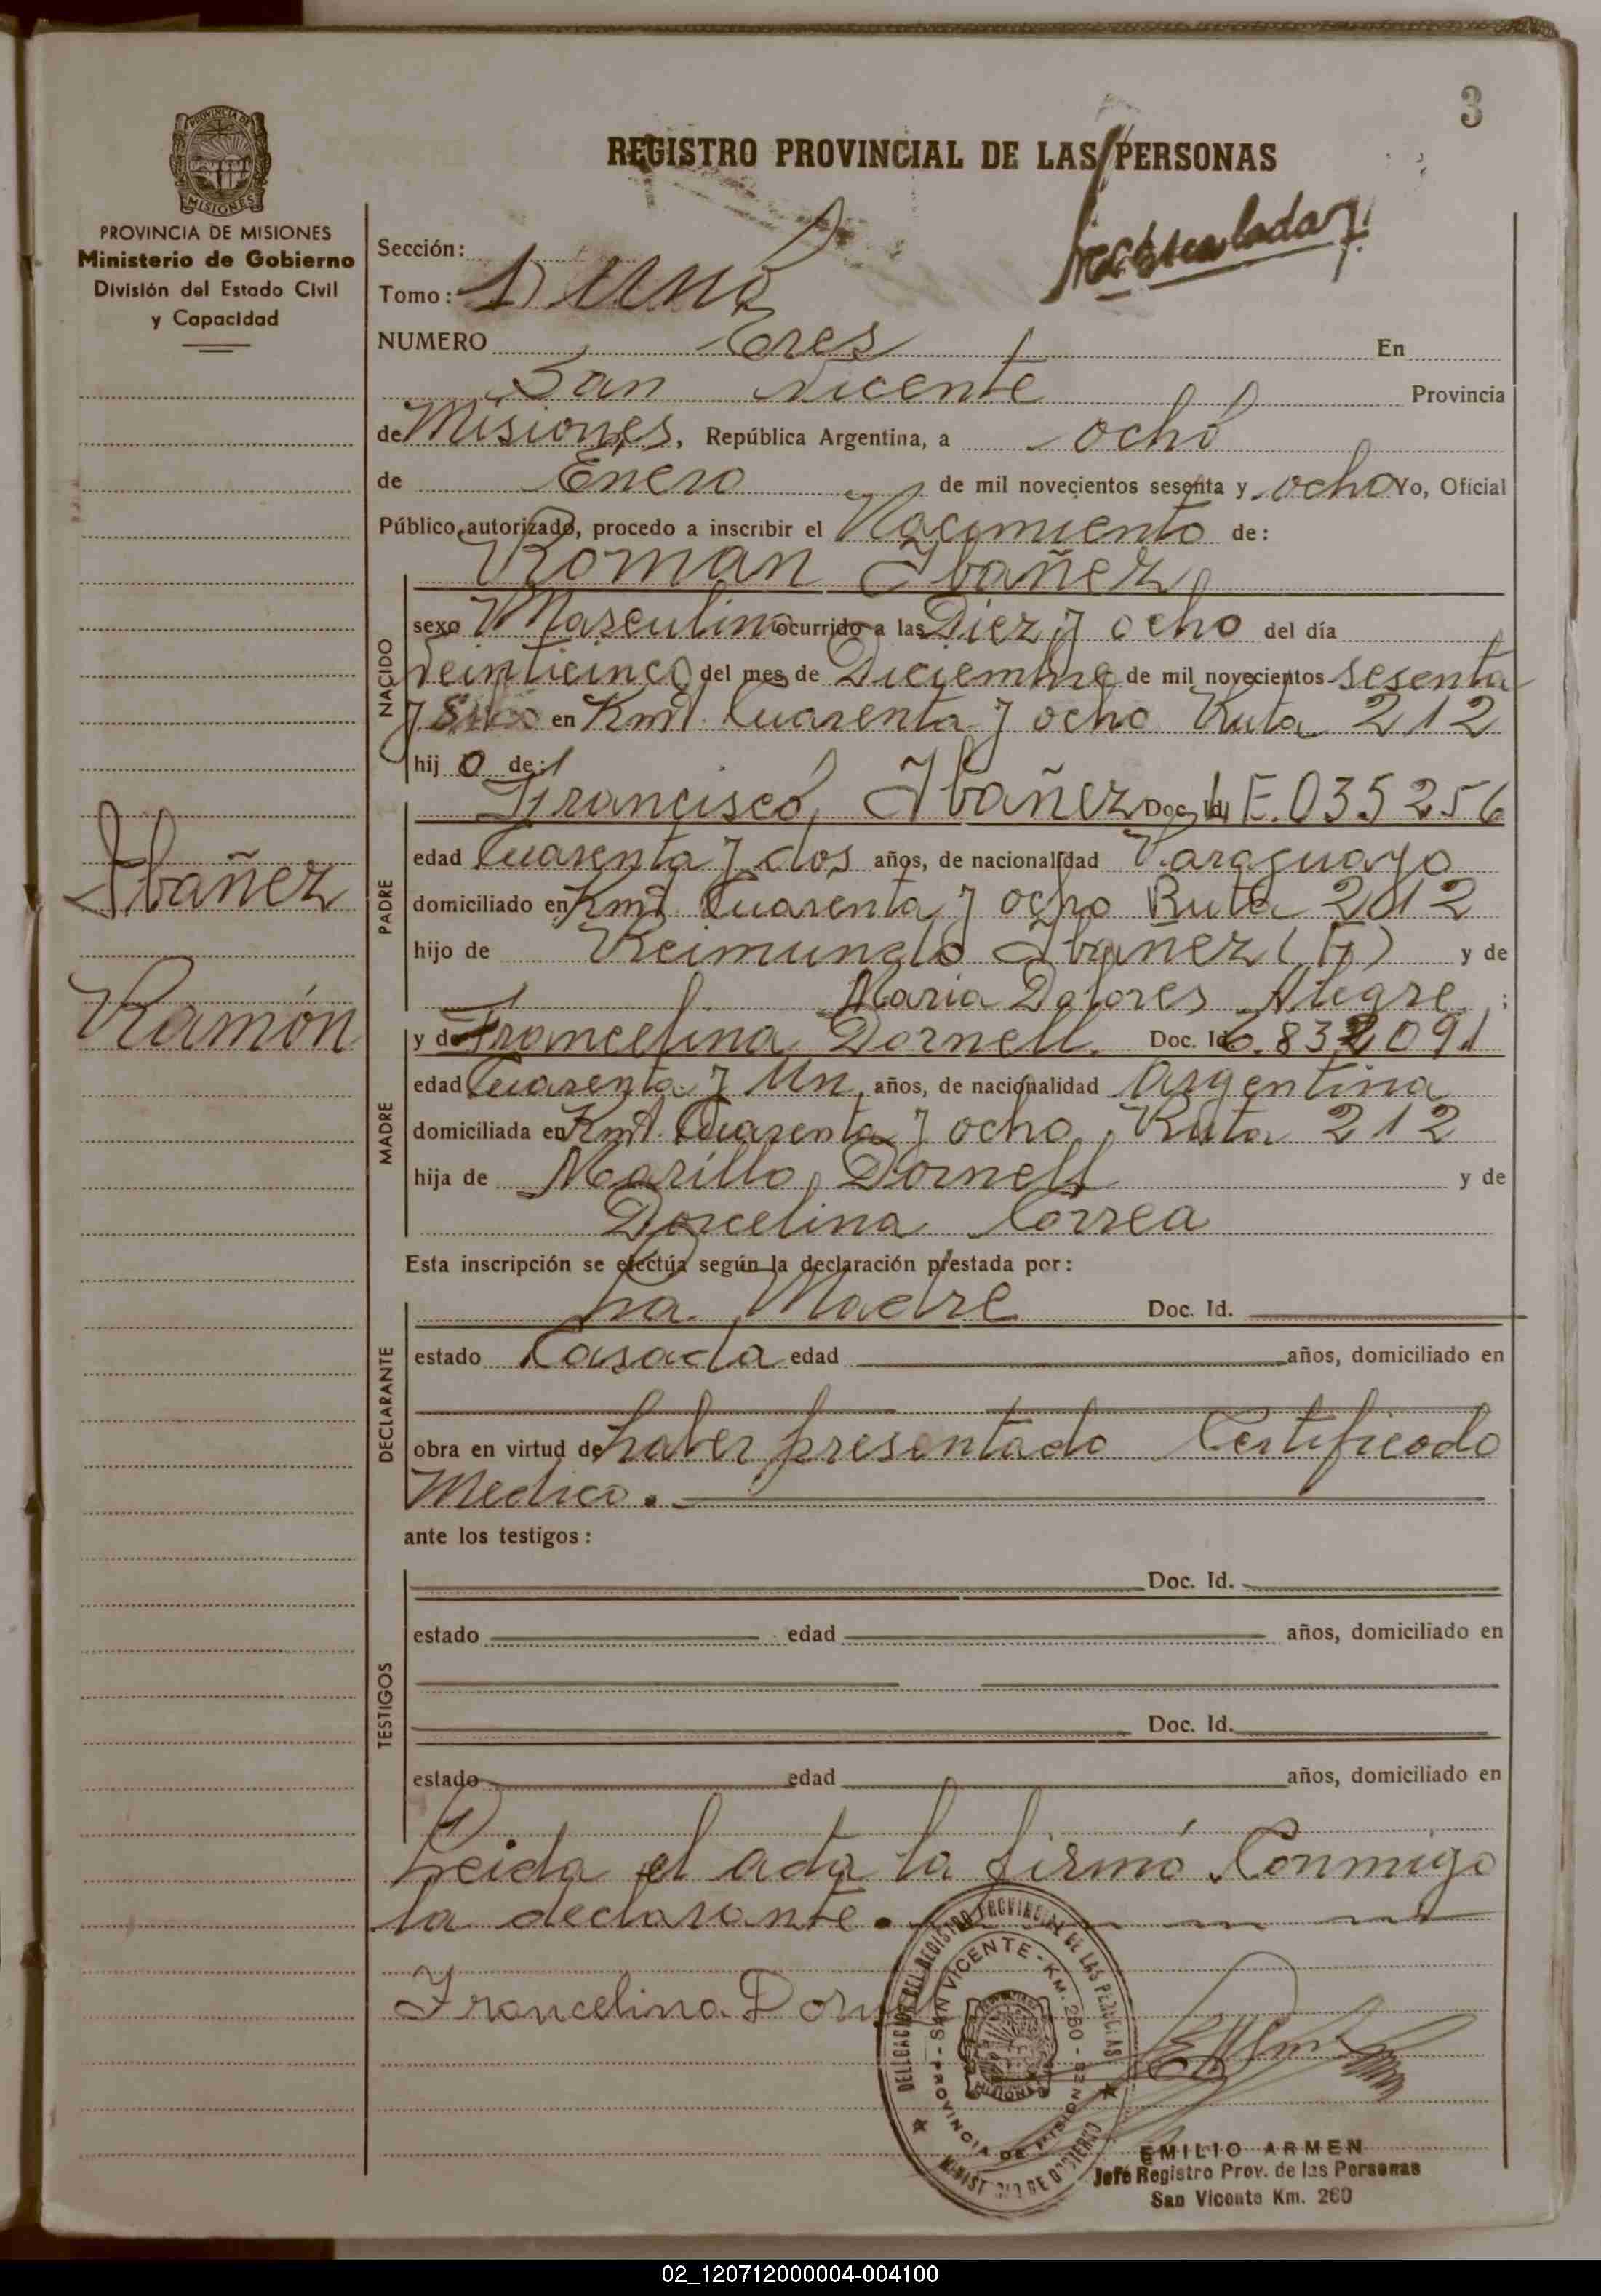 3
PROVINCIA DE
MISIONES
PROVINCIA DE MISIONES
Ministerio de Gobierno
División del Estado Civil
y Capacidad
Ibañez
Ramón
REGISTRO PROVINCIAL DE LAS PERSONAS
Sección:
Tomo: 1) uno
NUMERO Tres En
San Vicente Provincia
de Misiones, República Argentina, a ocho
de Enero de mil novecientos sesenta y ocho Yo, Oficial
Público autorizado, procedo a inscribir el Nacimiento de:
Roman Ibañez
NACIDO
sexo Masculino ocurrido a las Diez y ocho del día
veinticinco del mes de Diciembre de mil novecientos sesenta
y en Kmt. Cuarenta y ocho Ruta 212
hijo de:
PADRE
Francisco Ibañez Doc. Id. E.035256
edad Cuarenta y dos años, de nacionalidad Paraguayo
domiciliado en Kmt. Cuarenta y ocho Ruta 212
hijo de Reimundo Ibañez (F) y de
Maria Dolores Alegre;
MADRE
y de Francelina Dornell. Doc. Id. 6.832091
edad Cuarenta y Un años, de nacionalidad Argentina
domiciliada en Kmt. Cuarenta y ocho, Ruta 212
hija de Marillo Dornell y de
Dorcelina Correa
Esta inscripción se efectúa según la declaración prestada por:
DECLARANTE
La Madre Doc. Id.
estado Casada edad años, domiciliado en
obra en virtud de haber presentado Certificado
Medico.
ante los testigos:
TESTIGOS
Doc. Id.
estado edad años, domiciliado en
Doc. Id.
estado edad años, domiciliado en
Leida el acta la firmó Conmigo
la declarante.
Francelina Dornell
DELEGACION DEL REGISTRO PROVINCIAL DE LAS PERSONAS
SAN VICENTE - KM. 260 -
PROVINCIA DE MISIONES
MINISTERIO DE GOBIERNO
EMILIO ARMEN
Jefe Registro Prov. de las Personas
San Vicente Km. 260
02_120712000004-004100